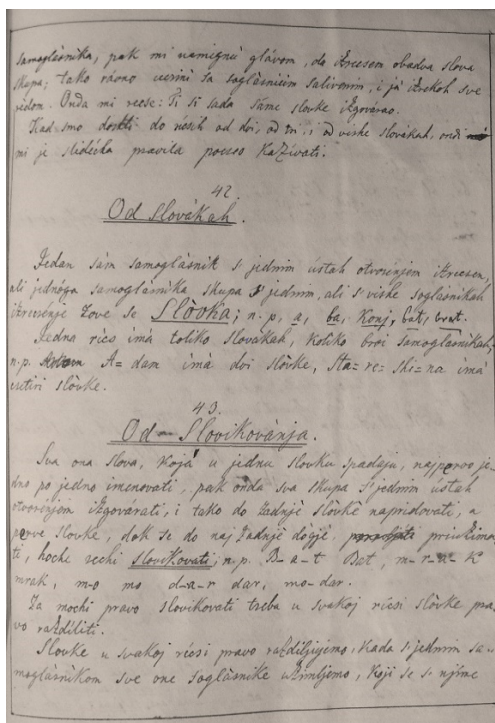 samoglásnika, pak mi namignú glávom, da izrcsem obadva slova
skupa; tako rávno ucsini sa soglásnicim salivenim, i já izrekoh sve
jedom. Onda mi recse: Ti si sada sáme slovke izgovárao.
Kad smo doshli do ricsih od dvi, od tri, i od vishe slovákah, ondi
mi je slidécha pravila pocseo kazívati.
42.
Od Slovákah.
Jedan sám samoglásnik s' jednim ústah otvorenjem izrecsen,
ali jednoga samoglásnika skupa s' jednim, ali s' vishe soglásnikah
izrecsenje zove se Slovka; n.p, a, ba, Konj, bat, brat.
Jedna rics imá toliko slovákah, koliko broi samoglásnikah;
n.p. A=dam imá dvi slòvke, Sta=re=shi=na imá
csetiri slòvke.
43.
Od Slovikovánja.
Sva ona slova, Kojá u jednu slovku spadaju, najpervo je-
dno po jedno imenovati, pak onda sva skupa s' jednim ústah
otvorenjom izgovárati, i tako do zadnje slòvke napridovati, a
perve slovke, dok se do naj zadnje dojje, priuzima
ti, hoche rechi slovikovati; n.p. B-a-t Bat, m-r-a-k
mrak, m-o mo d-a-r dar, mo-dar.
Za mochi pravo slovikovati treba u svakoj ricsi slòvke pra
vo razdíliti.
Slovke u svakoj ricsi pravo razdiljujemo, kada s' jednim sa-
moglásnikom sve one soglásnike uzimljemo, koji se s' njime